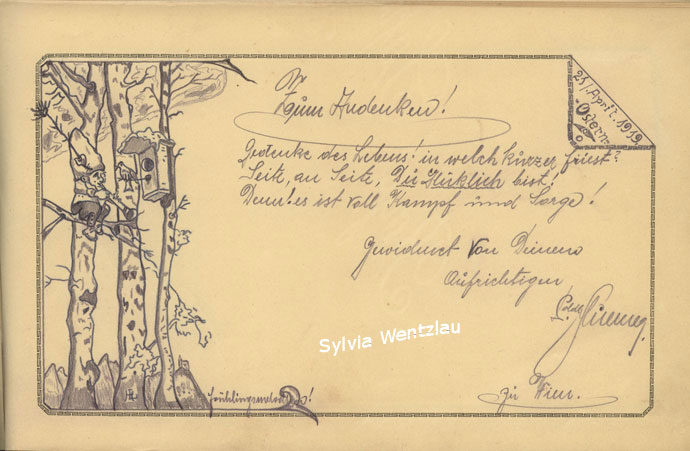 Zum Andenken!
21/. April. 1919
Ostern
Gedenke des Lebens! in welch kurzer, Frist?
Seite, an Seite, Du Glüklich bist!
Denn! es ist voll Kampf und Sorge!
Gewidmet Von Deinem
Aufrichtigen
Sylvia Wentzlau
zu Wien.